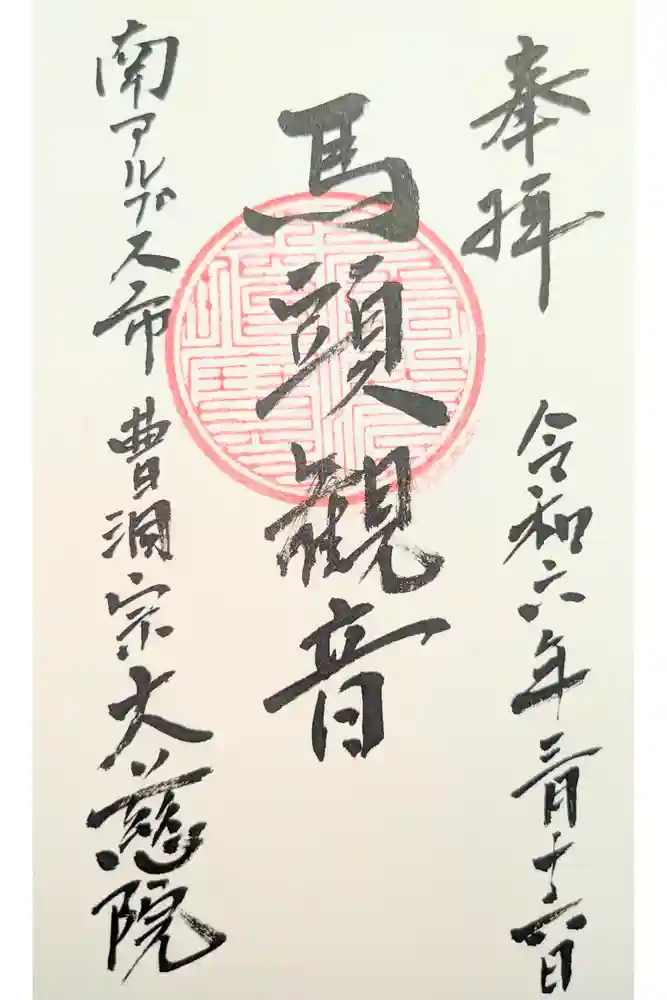 奉拝
令和六年三月十六日
馬頭観音
南アルプス市 曹洞宗大慈院